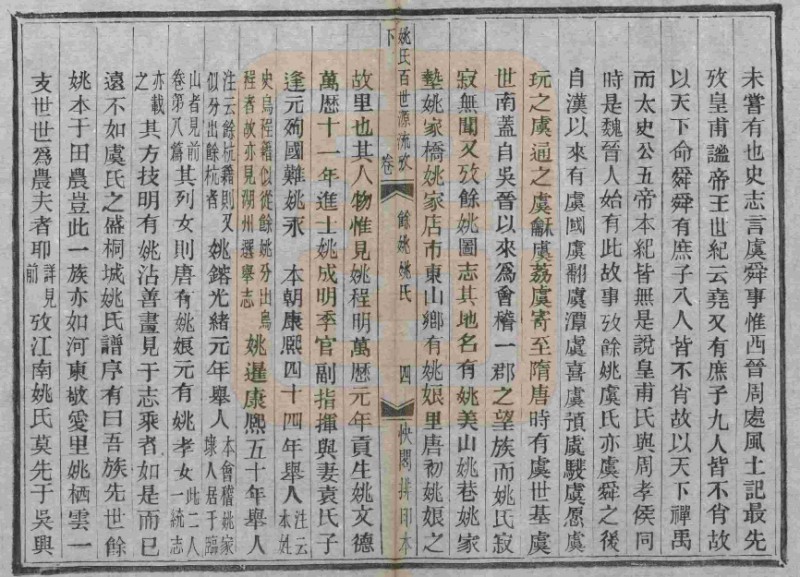 未嘗有也史志言虞舜事惟西晉周處風土記最先
攷皇甫謐帝王世紀云堯又有庶子九人皆不肖故
以天下命舜舜有庶子八人皆不肖故以天下禪禹
而太史公五帝本紀皆無是說皇甫氏與周孝侯同
時是魏晉人始有此故事攷餘姚虞氏亦虞舜之後
自漢以來有虞國虞翻虞潭虞喜虞預虞騣虞愿虞
玩之虞通之虞龢虞荔虞寄至隋唐時有虞世基虞
世南蓋自吳晉以來為會稽一郡之望族而姚氏寂
寂無聞又攷餘姚圖志其地名有姚美山姚巷姚家
墊姚家橋姚家店市東山鄉有姚娘里唐初姚娘之
姚氏百世源流攷 卷下 餘姚姚氏 四 快閣排印本
故里也其人物惟見姚程明萬曆元年貢生姚文德
萬曆十一年進士姚成明季官副指揮與妻袁氏子
逢元殉國難姚永 本朝康熙四十四年舉人注云本姓
史烏程籍似從餘姚分出烏程者故亦見湖州選舉志姚暹康熙五十年舉人
注云餘杭籍則又似分出餘杭者姚鎔光緒元年舉人本會稽姚家埭人居于臨
山者見前卷第八篇其列女則唐有姚娘元有姚孝女此二人一統志
亦載之其方技明有姚沾善畫見于志乘者如是而已
遠不如虞氏之盛桐城姚氏譜序有曰吾族先世餘
姚本于田農豈此一族亦如河東敬愛里姚栖雲一
支世世為農夫者耶詳見前攷江南姚氏莫先于吳興